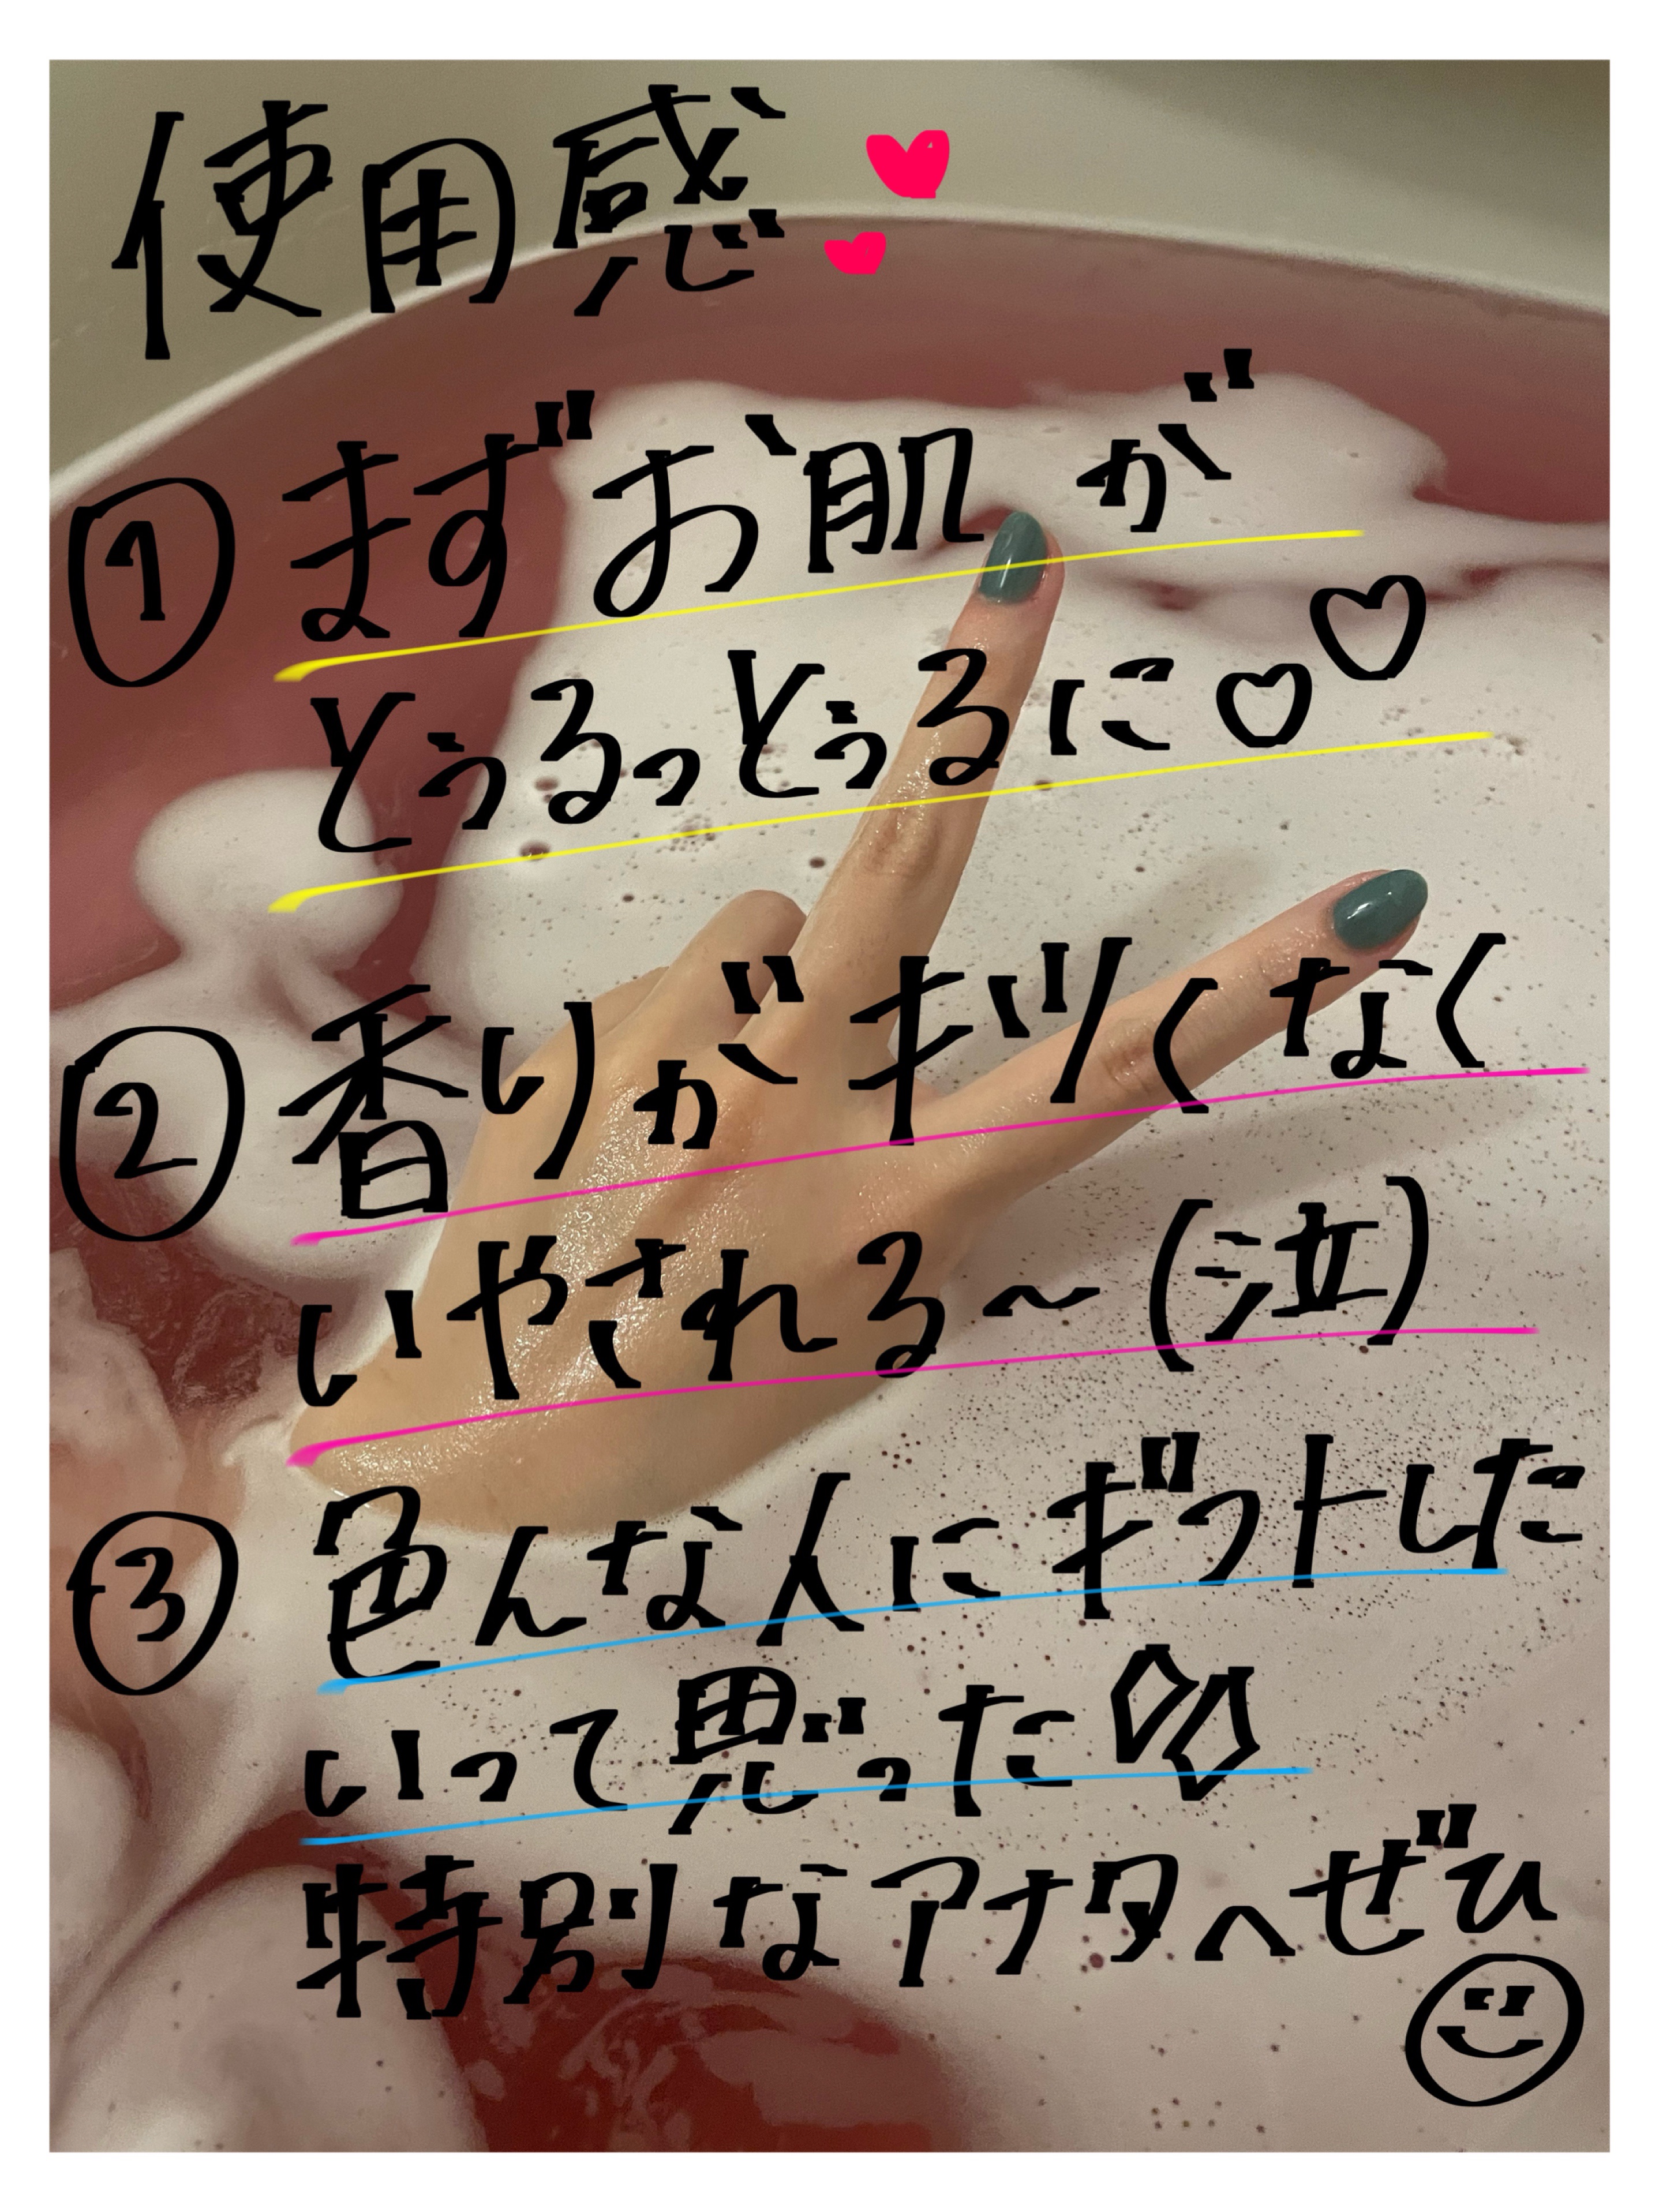 使用感
① まずお肌が
とぅるっとぅるに♡♡
② 香りがキツくなく
いやされる〜(泣)
③ 色んな人にギフトした
いって思った
特別なアナタへぜひ